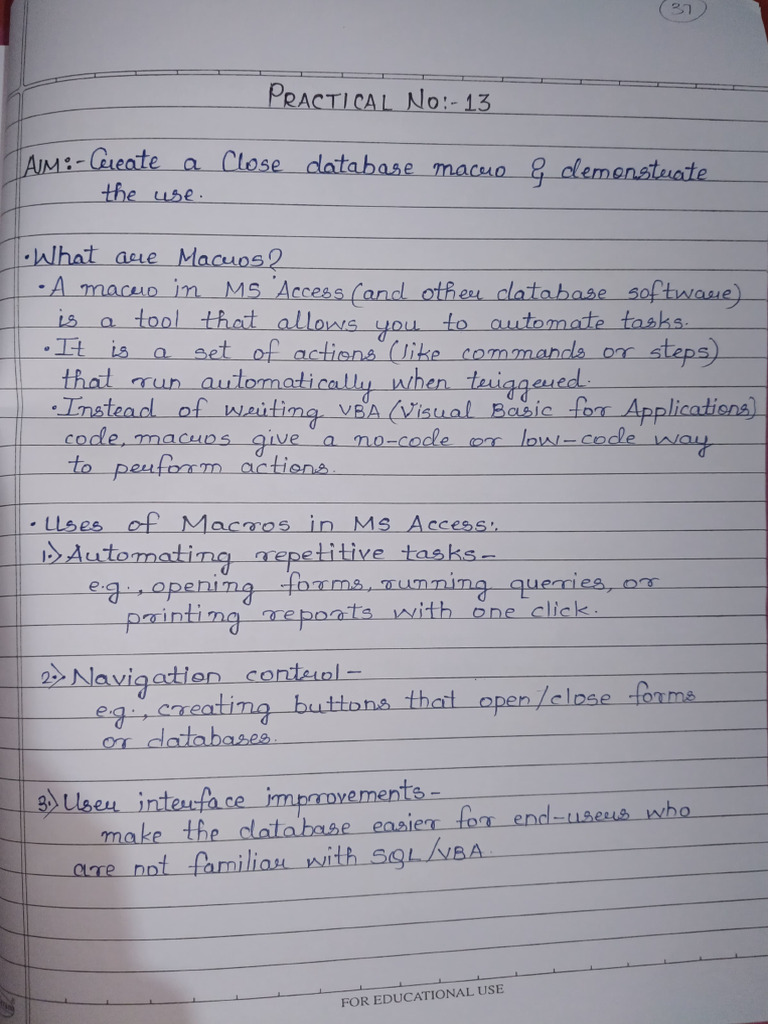 37
PRACTICAL NO:- 13
AIM:- Create a Close database macro & demonstrate
the use.
• What are Macros?
• A macro in MS Access (and other database software)
is a tool that allows you to automate tasks.
• It is a set of actions (like commands or steps)
that run automatically when triggered.
• Instead of writing VBA (Visual Basic for Applications)
code, macros give a no-code or low-code way
to perform actions.
• Uses of Macros in MS Access:
1.) Automating repetitive tasks –
e.g., opening forms, running queries, or
printing reports with one click.
2.) Navigation control –
e.g., creating buttons that open/close forms
or databases.
3.) User interface improvements –
make the database easier for end-users who
are not familiar with SQL/VBA.
FOR EDUCATIONAL USE